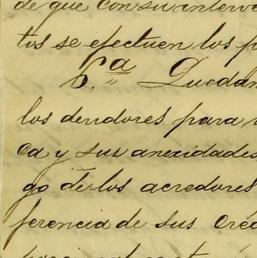 de que con su interv
tos se efectuen los p
6.ª Quedan
los deudores para
ca y sus anexidades
go de los acredores
ferencia de sus cré